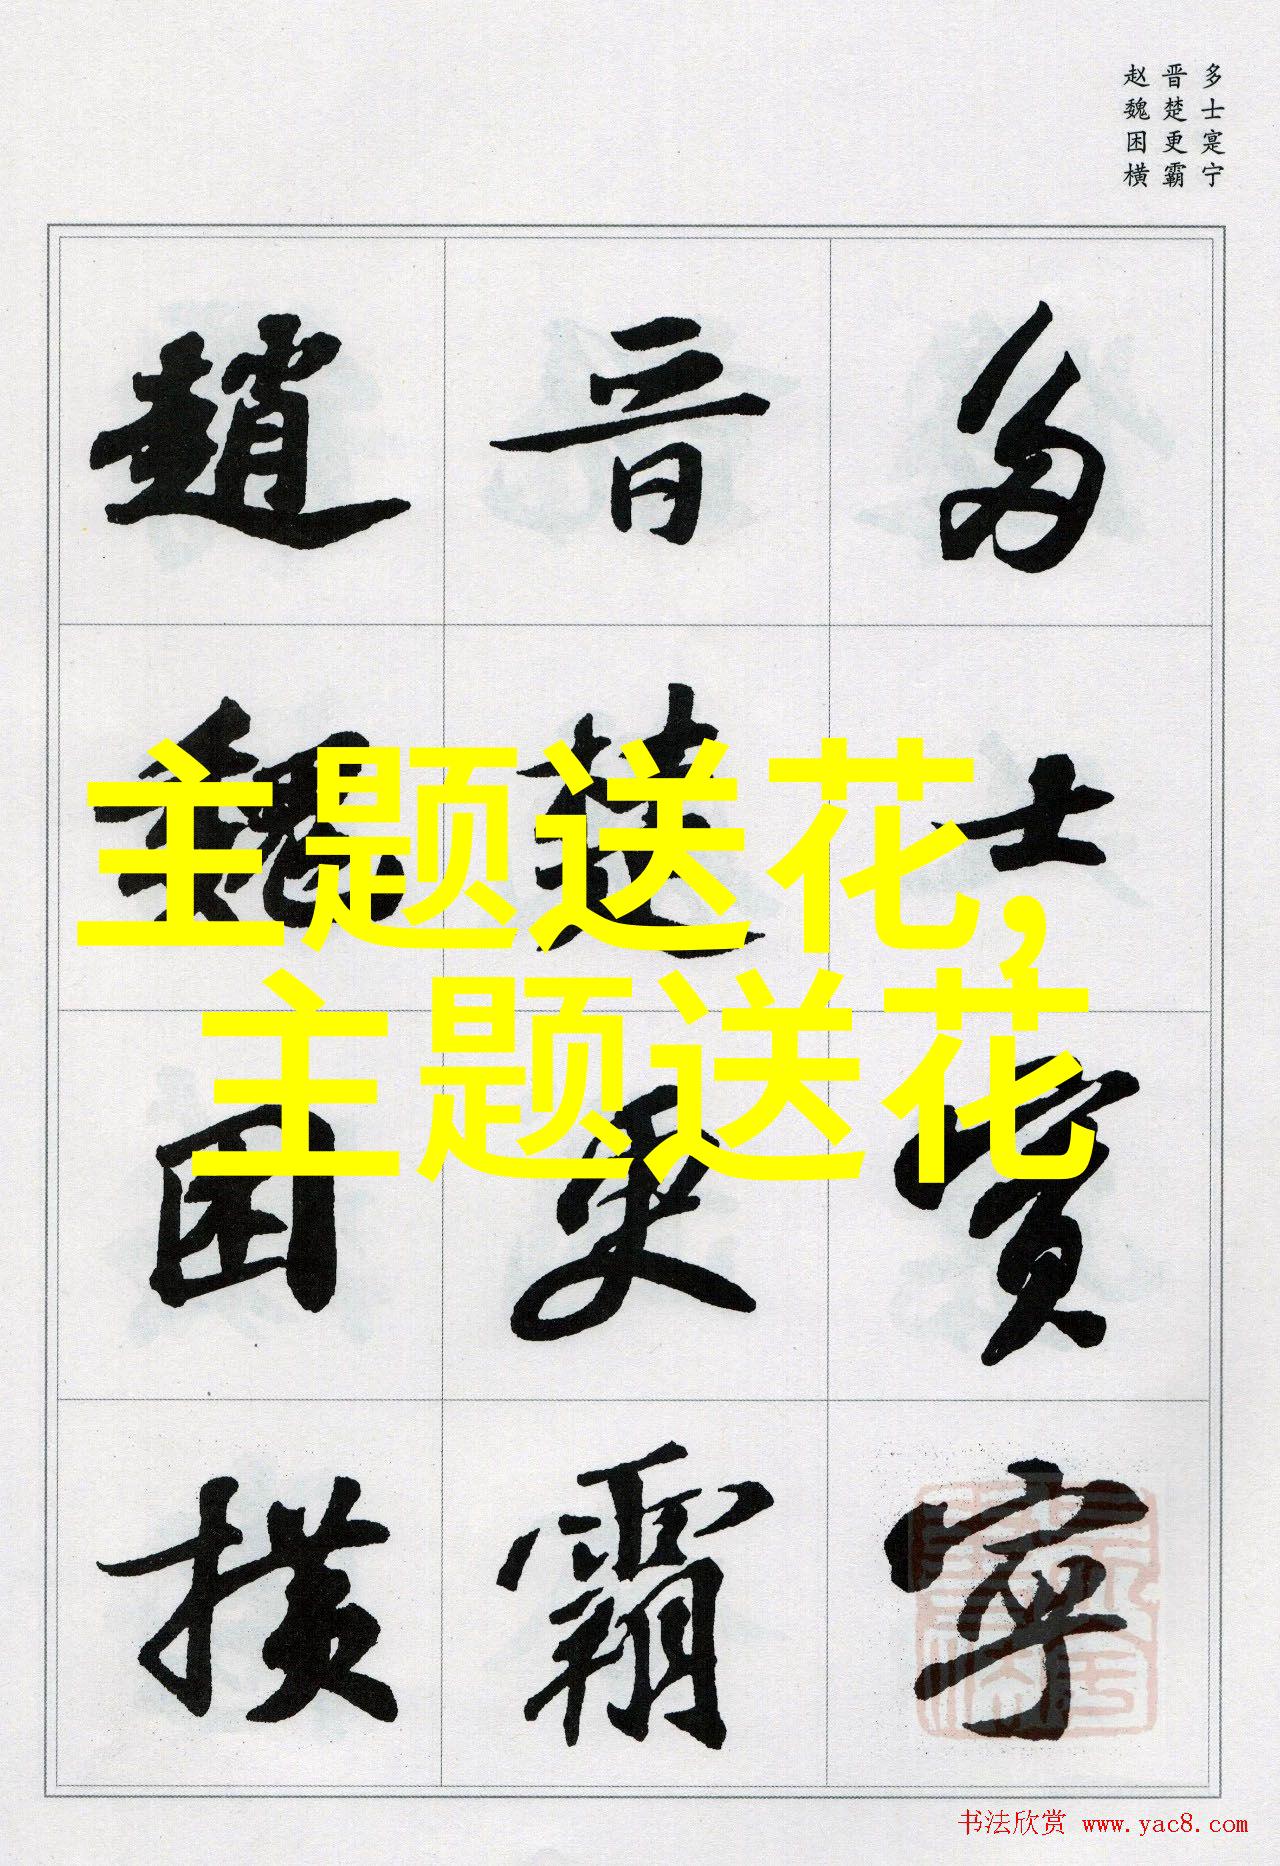 多士寔宁
晋楚更霸
赵魏困横
多士實寧
晋楚更霸
趙魏困横
主题送花,
主题送花
书法欣赏 www.yac8.com